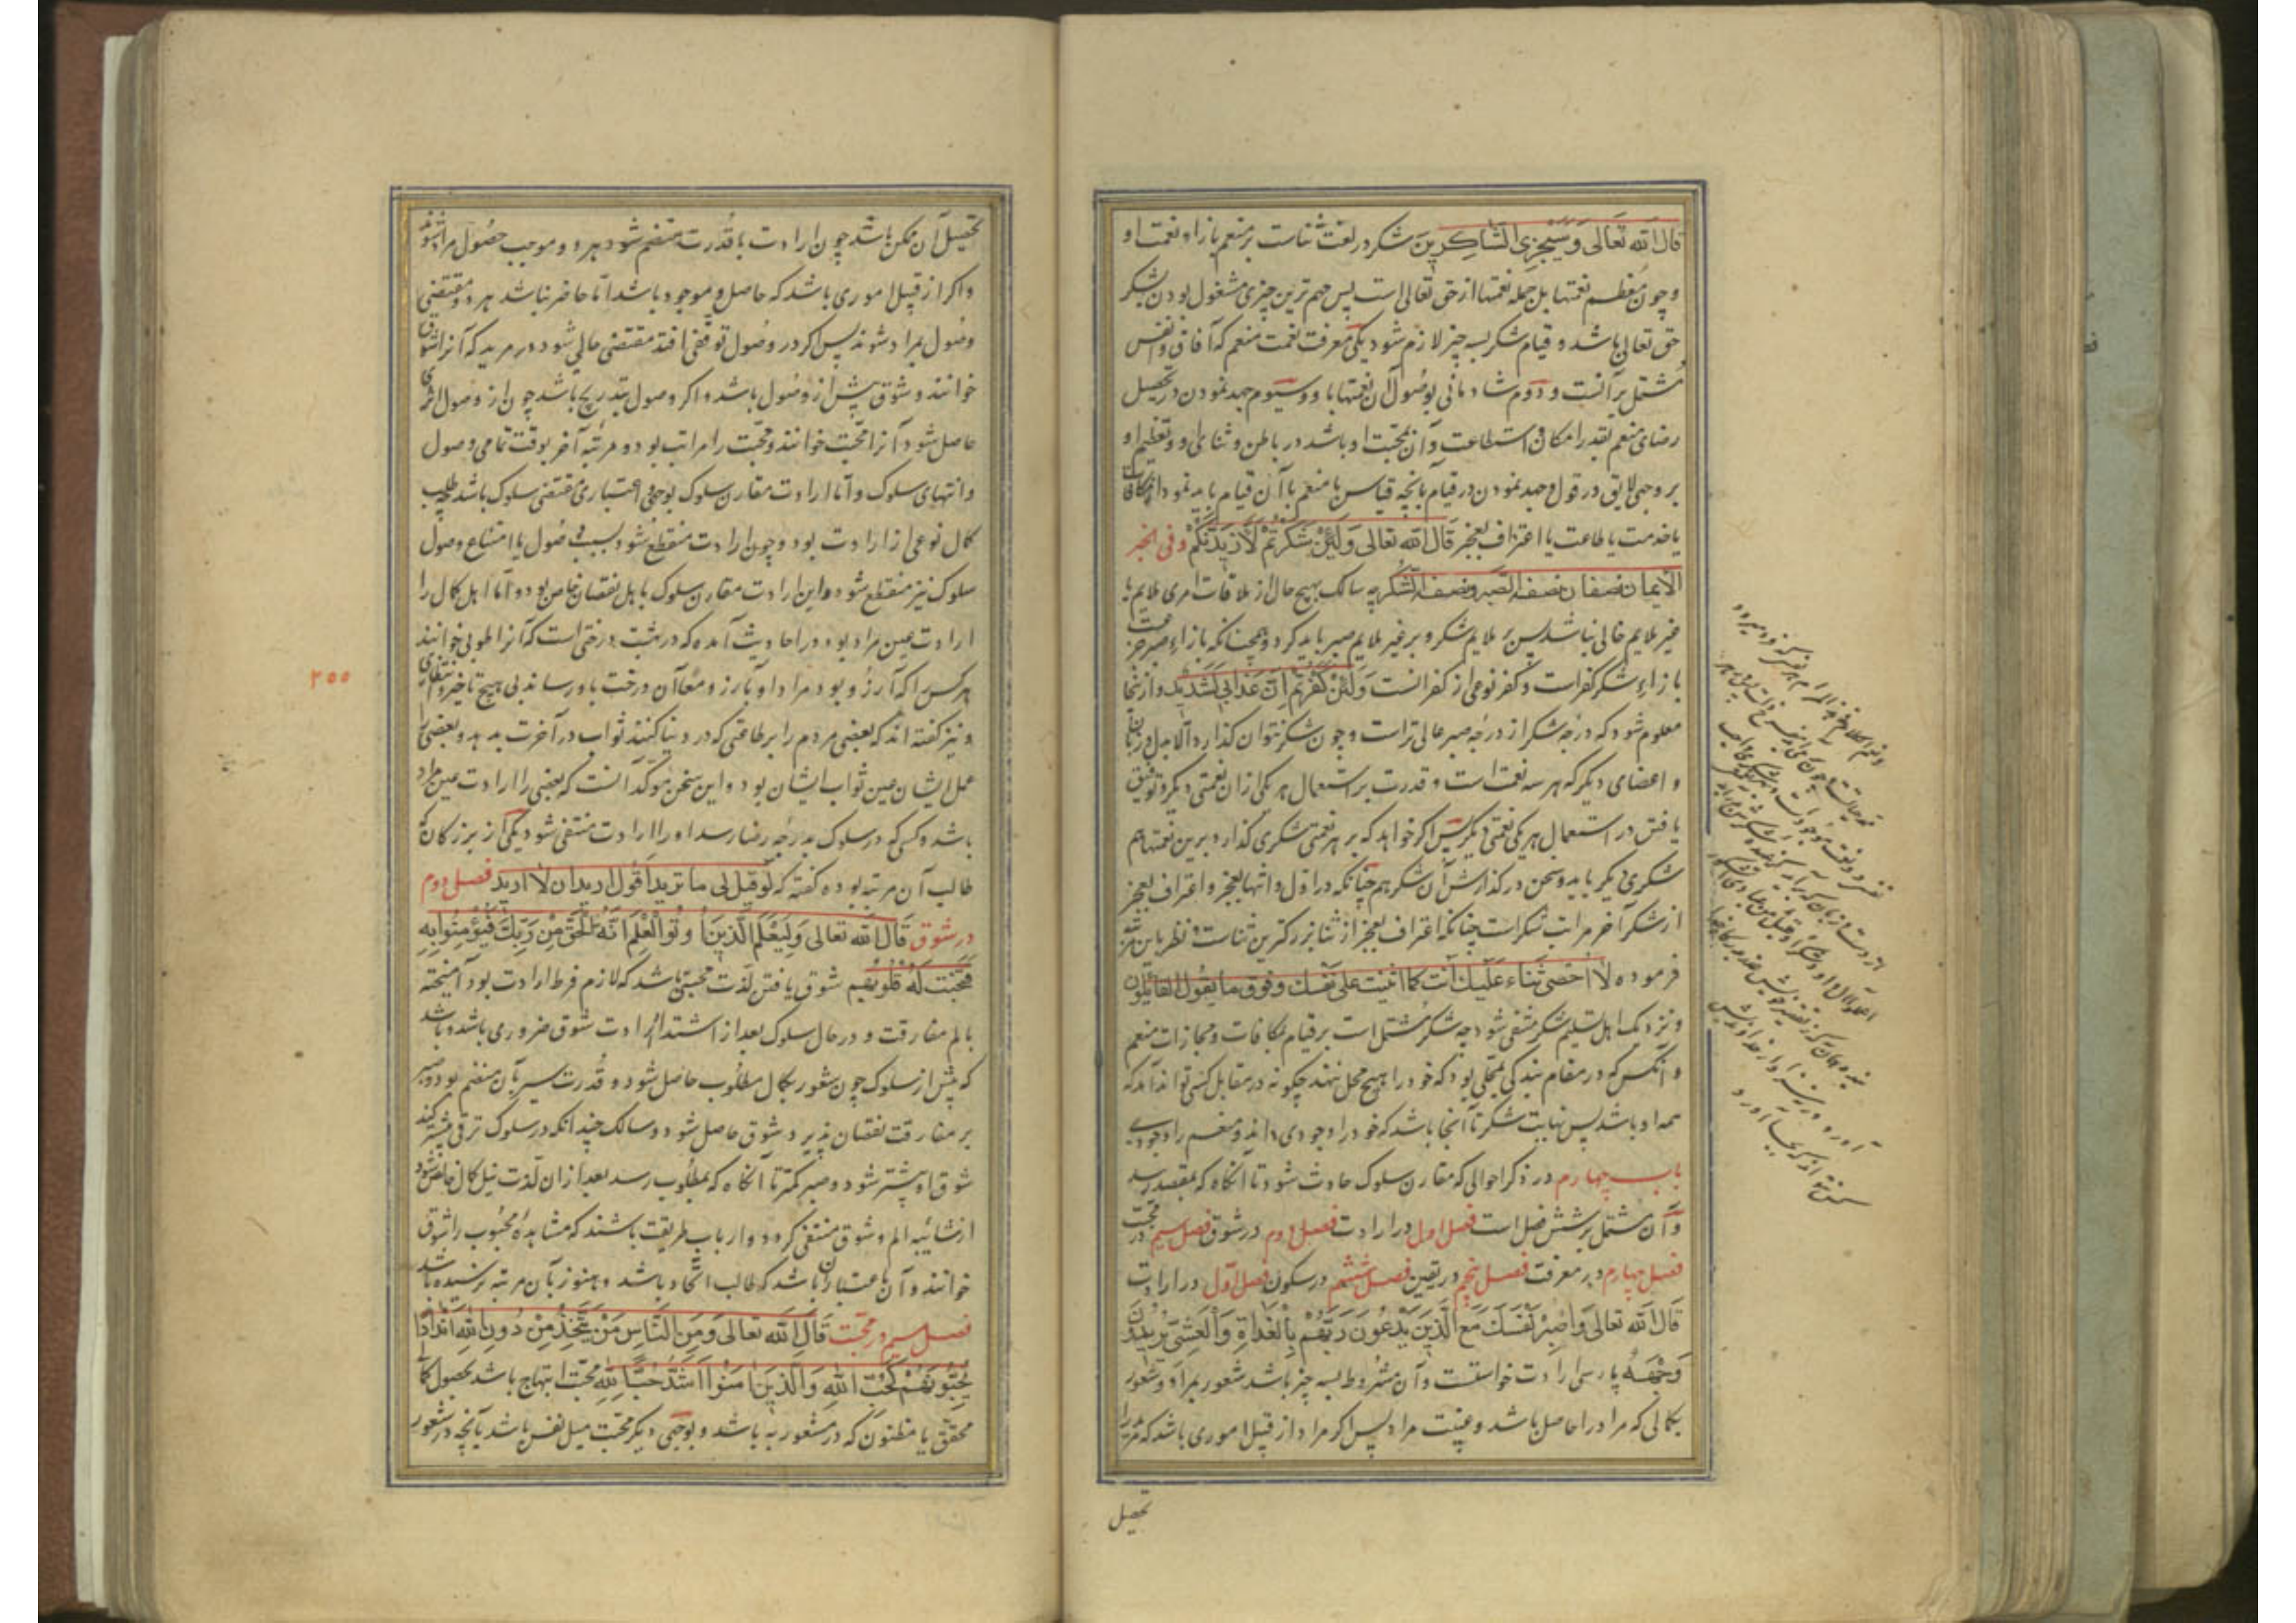 قال الله تعالی وسیجزی الشاکرین شکر در لغت ثناست بر منعم بازاء نعمت او
و چون معظم نعمتها بل جمله نعمتها از حق تعالی است پس مهم ترین چیزی مشغول بودن بشکر
حق تعالی باشد و قیام بشکر بسه چیز لازم شود یکی معرفت نعمت منعم که آفاق و انفس
مشتمل بر آنست و دوم شادمانی بوصول آن نعمتها باو و سیوم جهد نمودن در تحصیل
رضای منعم بقدر امکان و استطاعت و آن بمحبت او باشد در باطن و ثنای او و تعظیم او
بر وجهی لایق در قول و جهد نمودن در قیام بآنچه قیاس با منعم بآن قیام باید نمود از مکافات
یا خدمت یا طاعت یا اعتراف بعجز قال الله تعالی ولئن شکرتم لازیدنکم وفی الخبر
الایمان نصفان نصف الصبر ونصف الشکر چه سالک بهیچ حال از ملاقات امری ملایم یا
غیر ملایم خالی نباشد پس بر ملایم شکر و بر غیر ملایم صبر باید کرد و همچنانکه بازاء صبر جزعست
بازاء شکر کفر است و کفر نوعی از کفرانست ولئن کفرتم ان عذابی لشدید و از اینجا
معلوم شود که درجه شکر از درجه صبر عالی تر است و چون شکر نتوان گذارد الا بدل و زبان
و اعضای دیگر که هر سه نعمت است و قدرت بر استعمال هر یکی از آن نعمتی دیگر و توفیق
یافتن در استعمال هر یکی نعمتی دیگر پس اگر خواهد که بر هر نعمتی شکری گذارد برین نعمتها هم
شکری دیگر باید و سخن در گذارش آن شکر هم چنانکه در اول و انتها بعجز و اعتراف بعجز
از شکر آخر مراتب شکر است چنانکه اعتراف بعجز از ثنا بزرگترین ثناست و نظر باین
فرموده لا احصی ثناء علیک انت کما اثنیت علی نفسک وفوق ما یقول القائلون
و نزدیک اهل تسلیم شکر منتفی شود چه شکر مشتمل است بر قیام بمکافات و مجازات منعم
و آنکس که در مقام بندگی بمحلی بود که خود را هیچ محل ننهد چگونه در مقابل کسی تواند آمد که
همه او باشد پس نهایت شکر تا آنجا باشد که خود را وجودی داند و منعم را وجودی
باب چهارم در ذکر احوالی که مقارن سلوک حادث شود تا آنگاه که بمقصد رسد
و آن مشتمل بر شش فصل است فصل اول در ارادت فصل دوم در شوق فصل سیم در محبت
فصل چهارم در معرفت فصل پنجم در یقین فصل ششم در سکون فصل اول در ارادت
قال الله تعالی واصبر نفسک مع الذین یدعون ربهم بالغداة والعشی یریدون
وجهه پارسی ارادت خواستنست و آن مشروط بسه چیز باشد شعور بمراد و شعور
بکمالی که مراد را حاصل باشد و غیبت مراد پس اگر مراد از قبیل اموری باشد که مرید را
تحصیل
تحصیل آن ممکن باشد چون ارادت با قدرت منضم شود هر دو موجب حصول مراد شوند
و اگر از قبیل اموری باشد که حاصل و موجود باشد اما حاضر نباشد هر دو مقتضی
وصول بمراد شوند پس اگر در وصول توقفی افتد مقتضی حالی شود در مرید که آنرا شوق
خوانند و شوق پیش از وصول باشد و اگر وصول بتدریج باشد چون از وصول اثری
حاصل شود آنرا محبت خوانند و محبت را مراتب بود و مرتبه آخر بوقت تمامی وصول
و انتهای سلوک و اما ارادت مقارن سلوک بوجهی و اعتباری مقتضی سلوک باشد چه طلب
کمال نوعی از ارادت بود و چون ارادت منقطع شود بسبب وصول یا امتناع وصول
سلوک نیز منقطع شود و این ارادت مقارن سلوک باهل نقصان خاص بود و اما اهل کمال را
ارادت عین مراد بود و در احادیث آمده که در بهشت درختی است که آنرا طوبی خوانند
هر کس را که آرزو بود مراد او بآرزو معا آن درخت باو رساند بی هیچ تاخیر و انتظاری
و نیز گفته اند که بعضی مردم را بر طاعتی که در دنیا کنند ثواب در آخرت بدهد و بعضی را
عمل ایشان عین ثواب ایشان بود و این سخن مؤکد آنست که بعضی را ارادت عین مراد
باشد و کسی که در سلوک بدرجه رضا رسد او را ارادت منتفی شود یکی از بزرگان که
طالب آن مرتبه بوده گفته که لو قیل لی ما ترید اقول ارید ان لا ارید فصل دوم
در شوق قال الله تعالی ولیعلم الذین اوتوا العلم انه الحق من ربک فیؤمنوا به
فتخبت له قلوبهم شوق یافتن لذت محبتی باشد که لازم فرط ارادت بود آمیخته
بالم مفارقت و در حال سلوک بعد از اشتداد ارادت شوق ضروری باشد و باشد
که پیش از سلوک چون شعور بکمال مطلوب حاصل شود و قدرت سیر بآن منضم نبود و صبر
بر مفارقت نقصان پذیرد شوق حاصل شود و سالک چندانکه در سلوک ترقی بیشتر کند
شوق او بیشتر شود و صبر کمتر تا آنگاه که بمطلوب رسد بعد از آن لذت نیل کمال خالص شود
از شائبه الم و شوق منتفی گردد و ارباب طریقت باشند که مشاهده محبوب را شوق
خوانند و آن باعتبار آن باشد که طالب اتحاد باشد و هنوز بآن مرتبه نرسیده باشد
فصل سیم در محبت قال الله تعالی ومن الناس من یتخذ من دون الله اندادا
یحبونهم کحب الله والذین امنوا اشد حبا لله محبت ابتهاج باشد بحصول کمال
محقق یا مظنون که در مشعور به باشد و بوجهی دیگر محبت میل نفس باشد بآنچه در شعور
۲۵۵